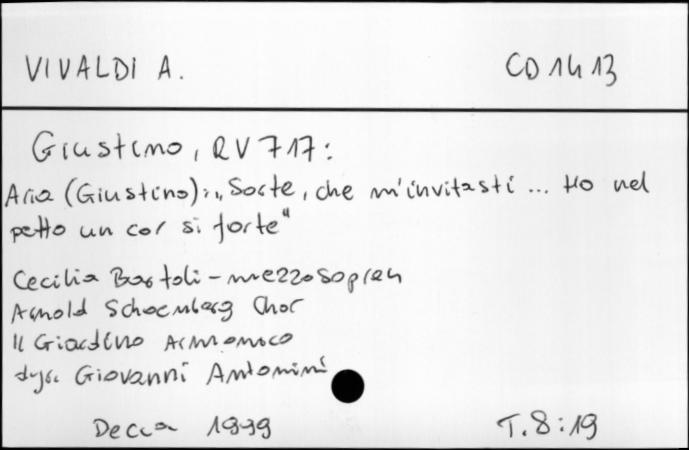 VIVALDI A. CD 1413
Giustino, RV 717:
Aria (Giustino): „Sorte, che m'invitasti ... Ho nel
petto un cor si forte"
Cecilia Bartoli - mezzosopran
Arnold Schoenberg Chor
Il Giardino Armonico
dyr. Giovanni Antonini
Decca 1999 T. 8:19